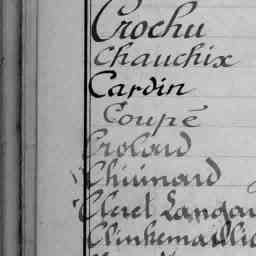 Crochu
Chauchix
Cardin
Coupé
Crolard
Chuinard
Cleret Langau
Clinkemaillie